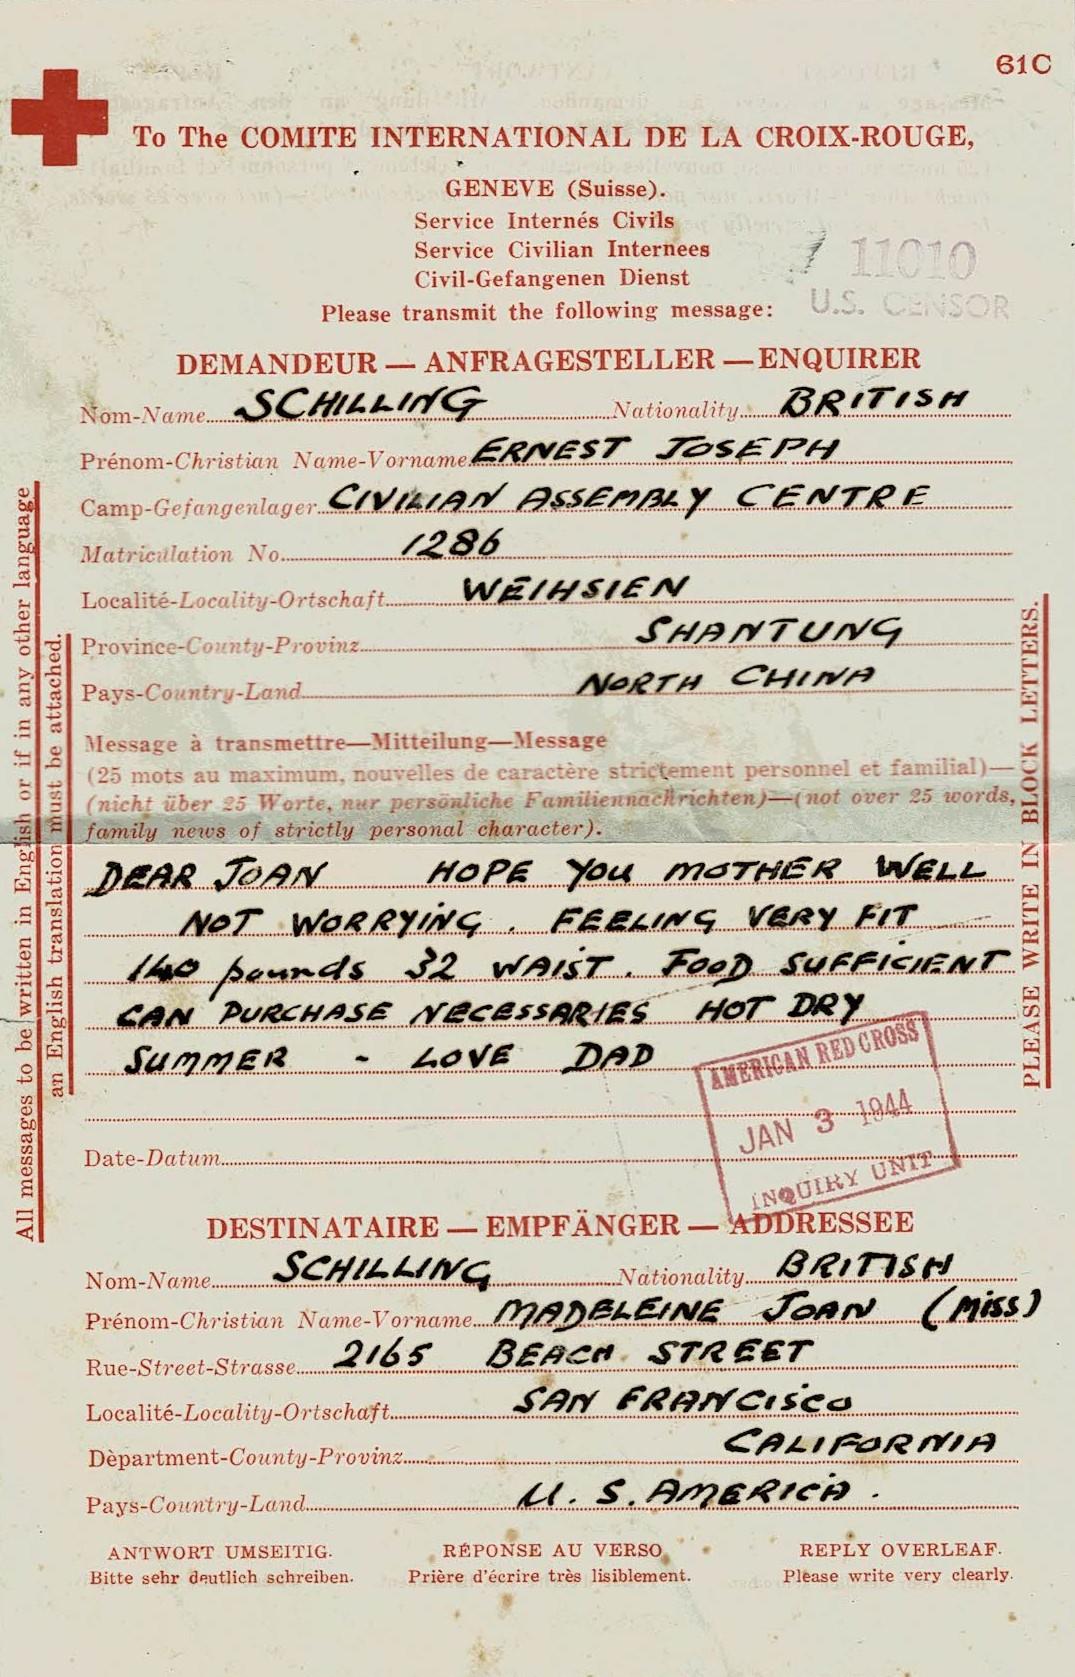 61C
To The COMITE INTERNATIONAL DE LA CROIX-ROUGE,
GENEVE (Suisse).
Service Internés Civils
Service Civilian Internees
Civil-Gefangenen Dienst
11010
U.S. CENSOR
Please transmit the following message:
DEMANDEUR — ANFRAGESTELLER — ENQUIRER
Nom-Name SCHILLING Nationality BRITISH
Prénom-Christian Name-Vorname ERNEST JOSEPH
Camp-Gefangenlager CIVILIAN ASSEMBLY CENTRE
Matriculation No. 1286
Localité-Locality-Ortschaft WEIHSIEN
Province-County-Provinz SHANTUNG
Pays-Country-Land NORTH CHINA
Message à transmettre—Mitteilung—Message
(25 mots au maximum, nouvelles de caractère strictement personnel et familial)—
(nicht über 25 Worte, nur persönliche Familiennachrichten)—(not over 25 words,
family news of strictly personal character).
DEAR JOAN HOPE YOU MOTHER WELL
NOT WORRYING. FEELING VERY FIT
140 pounds 32 WAIST. FOOD SUFFICIENT
CAN PURCHASE NECESSARIES HOT DRY
SUMMER - LOVE DAD
AMERICAN RED CROSS
JAN 3 1944
INQUIRY UNIT
Date-Datum
DESTINATAIRE — EMPFÄNGER — ADDRESSEE
Nom-Name SCHILLING Nationality BRITISH
Prénom-Christian Name-Vorname MADELEINE JOAN (MISS)
Rue-Street-Strasse 2165 BEACH STREET
Localité-Locality-Ortschaft SAN FRANCISCO
Dèpartment-County-Provinz CALIFORNIA
Pays-Country-Land U. S. AMERICA.
ANTWORT UMSEITIG. RÉPONSE AU VERSO REPLY OVERLEAF.
Bitte sehr deutlich schreiben. Prière d'écrire très lisiblement. Please write very clearly.
All messages to be written in English or if in any other language
an English translation must be attached.
PLEASE WRITE IN BLOCK LETTERS.